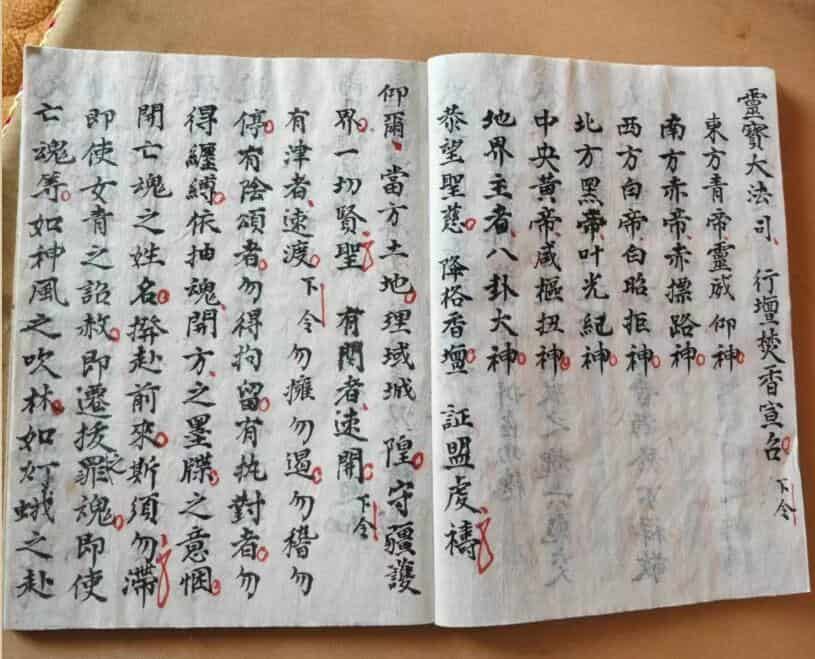 靈寶大法司、行壇焚香宣召。下令
東方青帝、靈威仰神。
南方赤帝、赤摽路神。
西方白帝白昭拒神。
北方黑帝、叶光紀神。
中央黃帝、咸樞扭神。
地界主者、八卦大神。
恭望聖慈。降格香壇 証盟虔禱
仰爾、當方土地。理域城隍。守疆護
界。一切賢聖 有門者、速開。下令
有津者、速渡。下令 勿擁勿遏。勿稽勿
停。有陰頌者。勿得拘留。有执對者。勿
得纏縛。依抽魂、開方、之墨牒。之意悃。
開亡魂之姓名。撥赴前來。斯須勿滯
即使女青之詔赦。即遷拔罪魂。即使
亡魂等。如神風之吹林。如灯蛾之赴